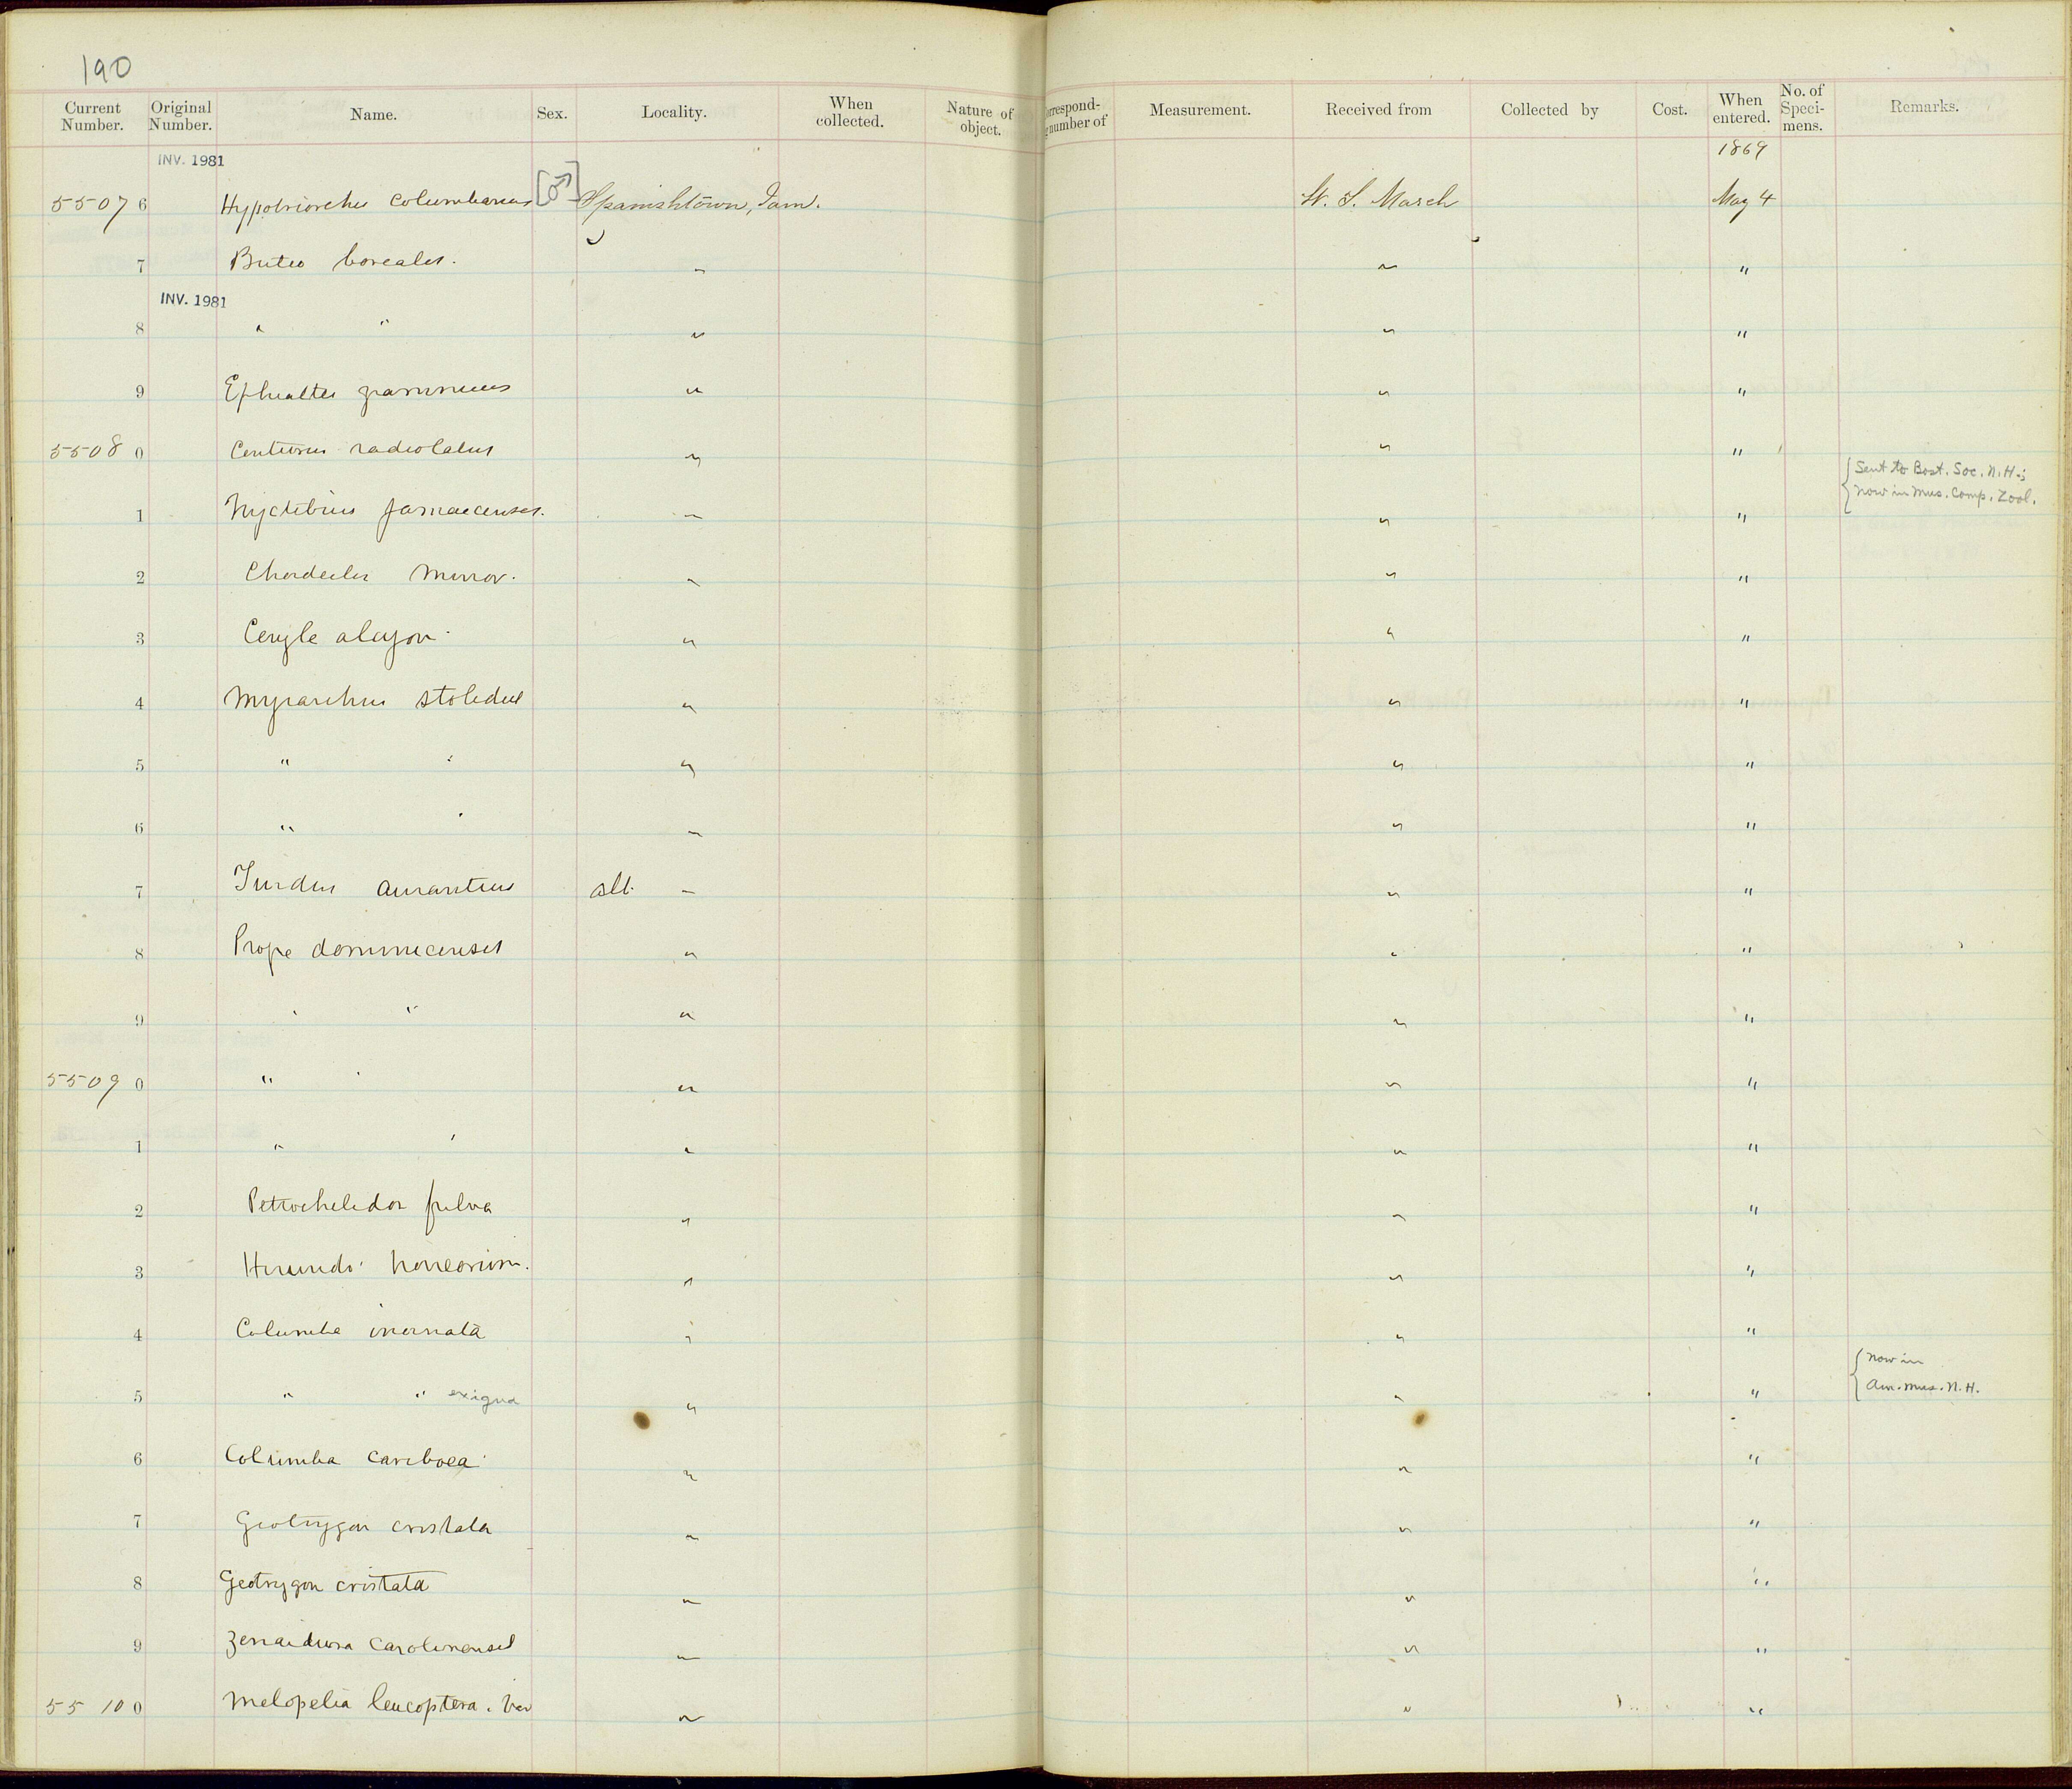 190
Current Number. Original Number. Name. Sex. Locality. When collected. Nature of object. orrespond- g number of Measurement. Received from Collected by Cost. When entered. No. of Speci- mens. Remarks.
INV. 1981 1869
5507 6 Hypotriorchis columbarius [♂] Spanishtown, Jam. W. T. March May 4
7 Buteo borealis. " " "
INV. 1981
8 " " " " "
9 Ephialtes grammicus " " "
5508 0 Centurus radiolatus " " "
{ Sent to Bost. Soc. N.H.;
1 Nyctibius jamaicensis. " " " now in Mus. Comp. Zool.
2 Chordeiles minor. " " "
3 Ceryle alcyon. " " "
4 Myiarchus stolidus " " "
5 " " " " "
6 " " " " "
7 Turdus aurantius all. " " "
8 Progne dominicensis " " "
9 " " " " "
5509 0 " " " " "
1 " " " " "
2 Petrochelidon fulva " " "
3 Hirundo horreorum. " " "
4 Columba inornata " " "
{ now in
5 " " exigua " " " Am. Mus. N.H.
6 Columba cariboea " " "
7 Geotrygon cristata " " "
8 Geotrygon cristata " " "
9 Zenaidura carolinensis " " "
55 10 0 Melopelia leucoptera. Var " " "